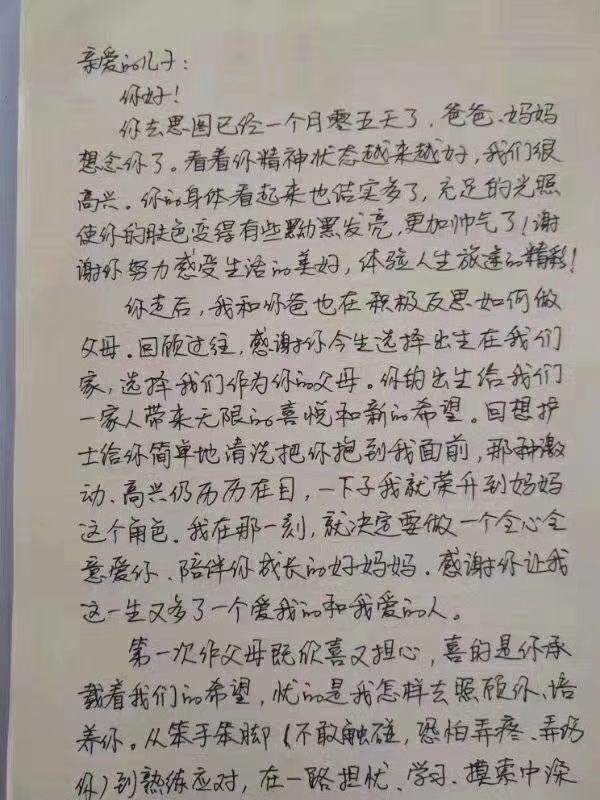 亲爱的儿子：
你好！
你去思图已经一个月零五天了，爸爸、妈妈
想念你了。看着你精神状态越来越好，我们很
高兴。你的身体看起来也结实多了，充足的光照
使你的肤色变得有些黝黑发亮，更加帅气了！谢
谢你努力感受生活的美好，体验人生旅途的精彩！
你走后，我和你爸也在积极反思如何做
父母。回顾过往，感谢你今生选择出生在我们
家，选择我们作为你的父母。你的出生给我们
一家人带来无限的喜悦和新的希望。回想护
士给你简单地清洗把你抱到我面前，那种激
动、高兴仍历历在目，一下子我就荣升到妈妈
这个角色。我在那一刻，就决定要做一个全心全
意爱你、陪伴你成长的好妈妈。感谢你让我
这一生又多了一个爱我的和我爱的人。
第一次作父母既欣喜又担心，喜的是你承
载着我们的希望，忧的是我怎样去照顾你、培
养你。从笨手笨脚（不敢触碰，恐怕弄疼、弄伤
你）到熟练应对，在一路担忧、学习、摸索中深